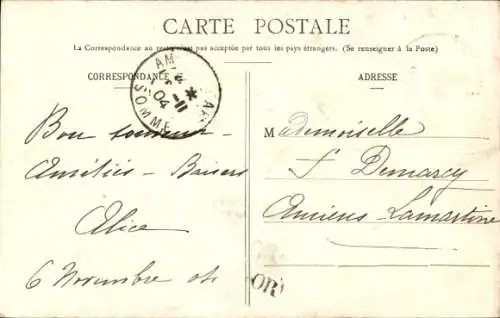 CARTE POSTALE
La Correspondance au recto n'est pas acceptée par tous les pays étrangers. (Se renseigner à la Poste)
CORRESPONDANCE
ADRESSE
AM
-11
04
SOMME
Bon souvenir -
Amitiés - Baisers
Alice
6 Novembre 04
Mademoiselle
F Demarcy
Amiens-Lamartine
OR